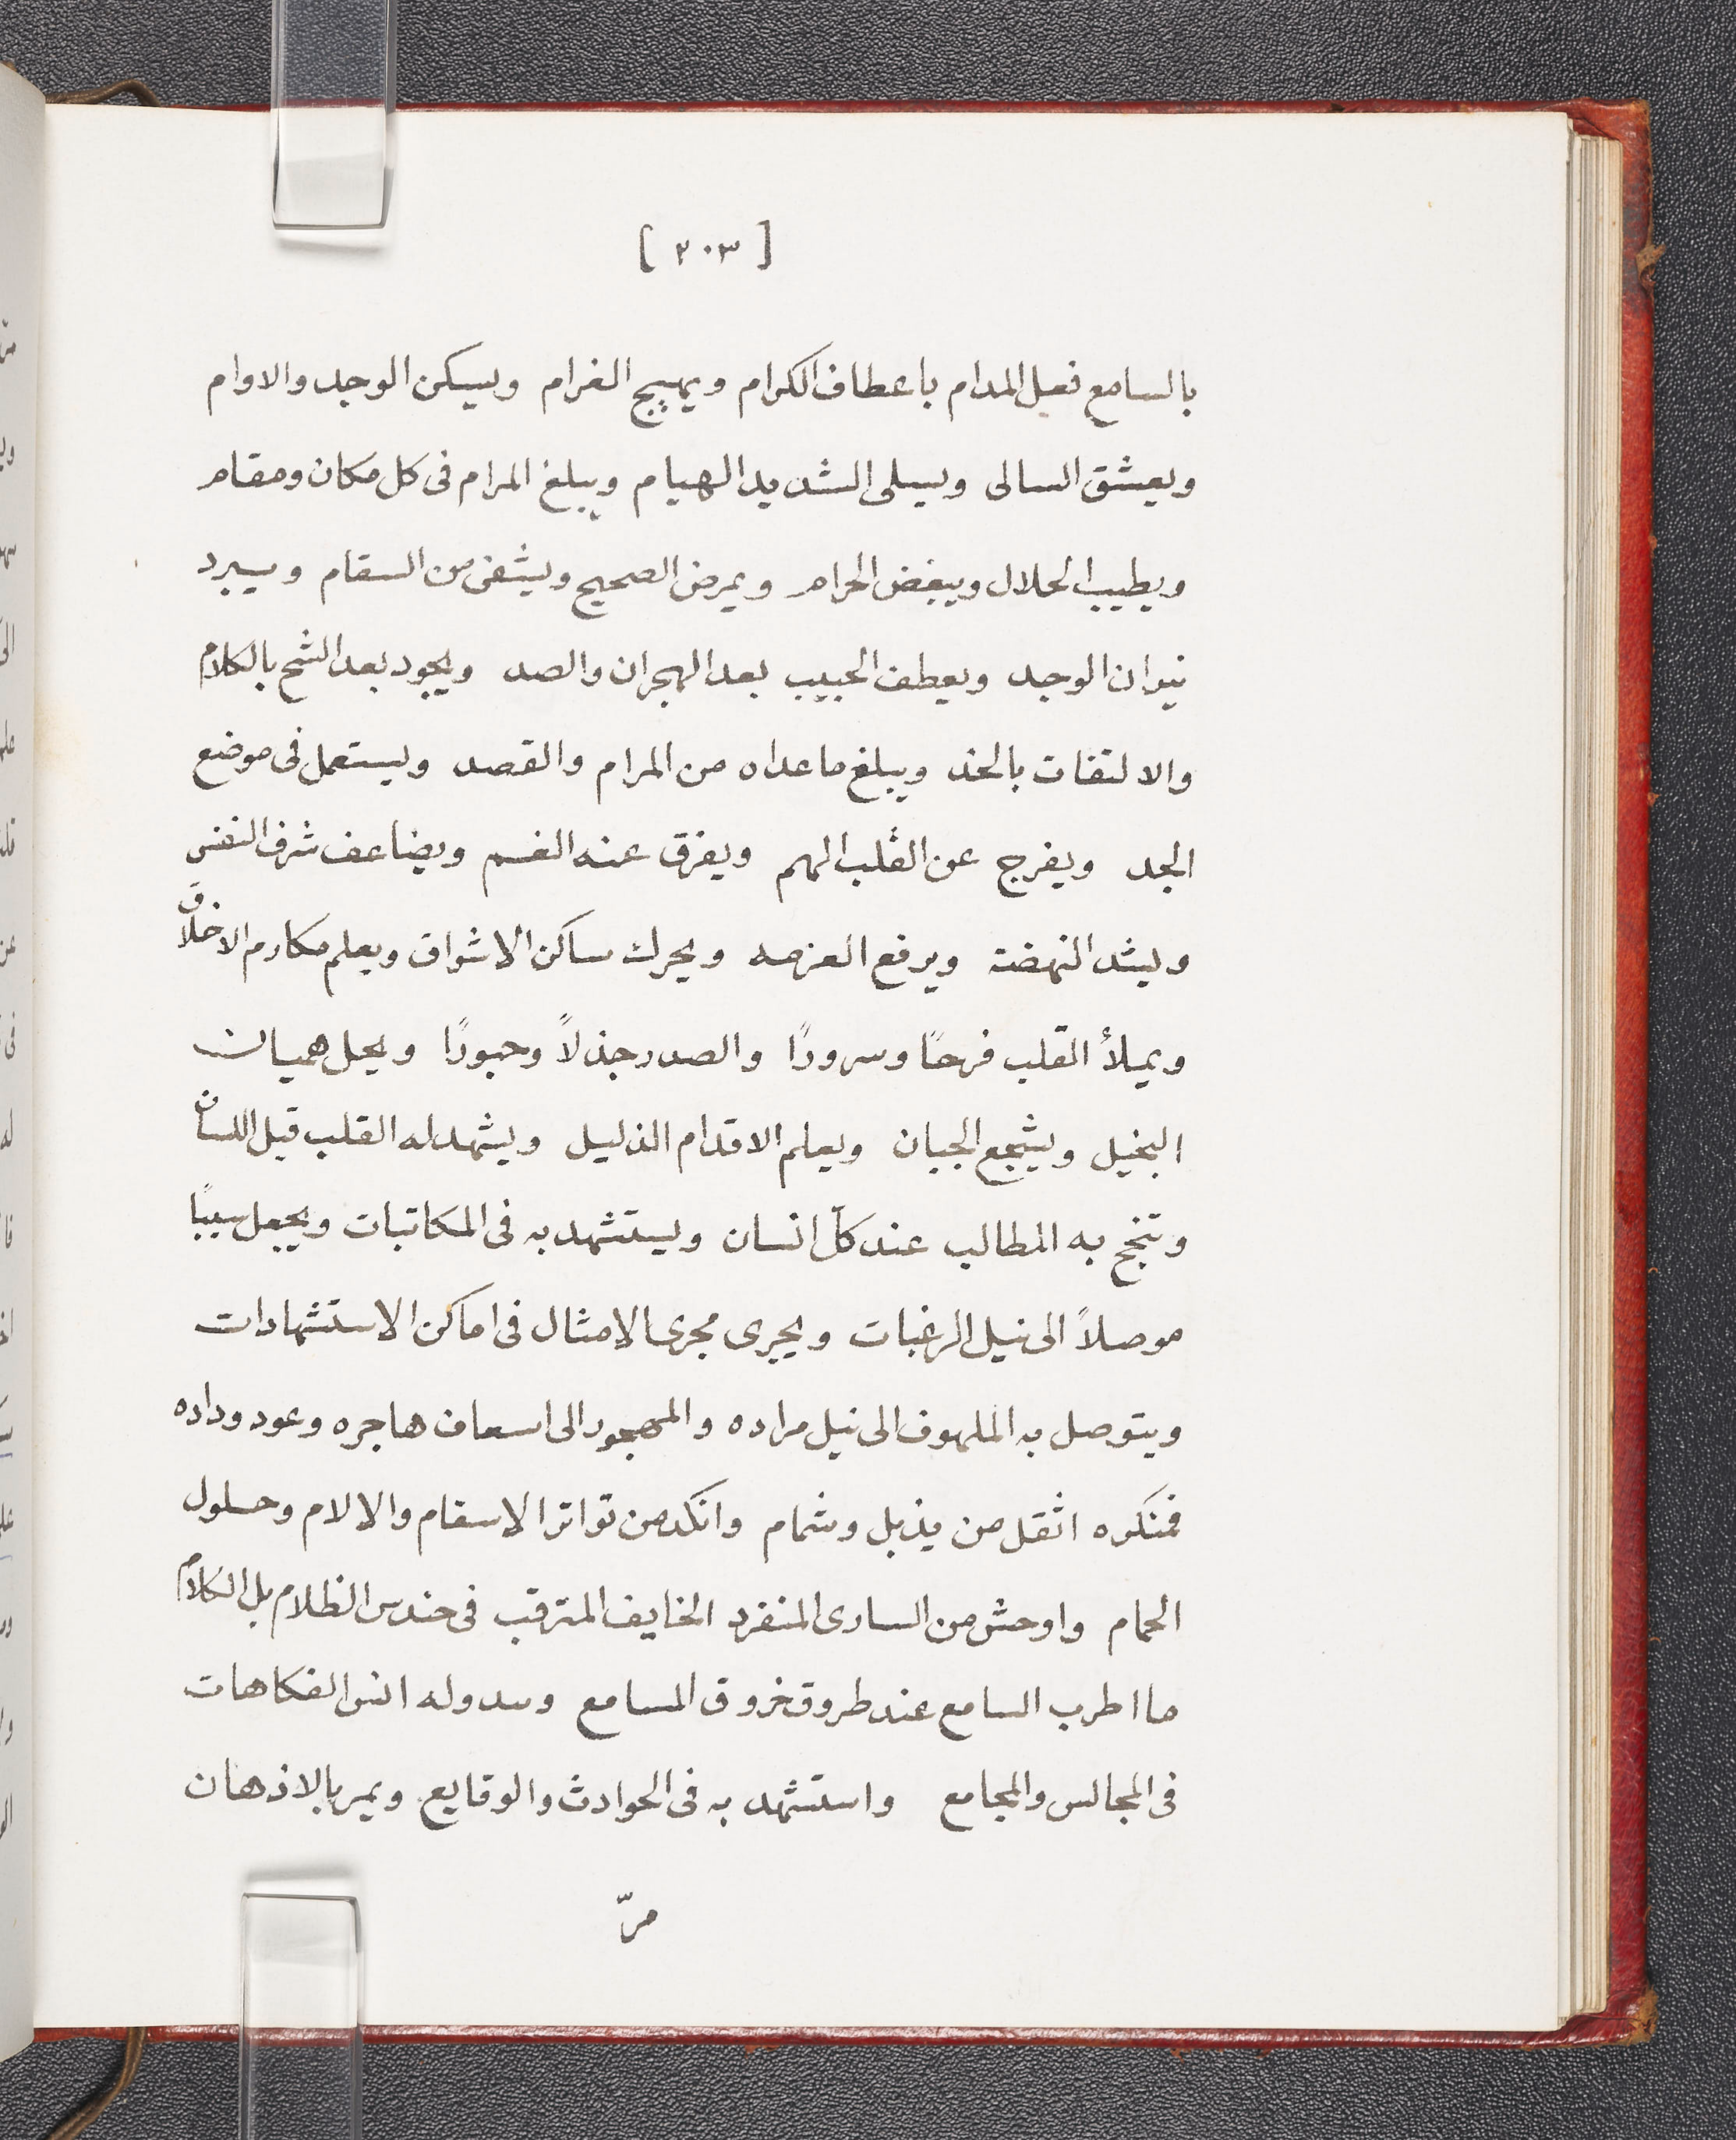 [ ٢٠٣ ]
بالسامع فعل المدام باعطاف الكرام ويهيج الغرام ويسكن الوجد والاوام
ويعشق السالى ويسلى الشديد الهيام ويبلغ المرام فى كل مكان ومقام
ويطيب الحلال ويبغض الحرام ويمرض الصحيح ويشفى من السقام ويبرد
نيران الوجد ويعطف الحبيب بعد الهجران والصد ويجود بعد الشح بالكلام
والالتفات بالخد ويبلغ ما عداه من المرام والقصد ويستعمل فى موضع
الجد ويفرج عن القلب الهم ويفرق عنه الغم ويضاعف شرف النفس
ويشد النهضة ويرفع العزمه ويحرك ساكن الاشواق ويعلم مكارم الاخلاق
ويملأ القلب فرحًا وسرورًا والصدر جذلاً وحبورًا ويحل هميان
البخيل ويشجع الجبان ويعلم الاقدام الذليل ويشهد له القلب قبل اللسان
وتنجح به المطالب عند كل انسان ويستشهد به فى المكاتبات ويجعل سببًا
موصلاً الى نيل الرغبات ويجرى مجرى الامثال فى اماكن الاستشهادات
ويتوصل به الملهوف الى نيل مراده والمهجور الى اسعاف هاجره وعود وداده
فمنكره اثقل من يذبل وشمام وانكد من تواتر الاسقام والالام وحلول
الحمام واوحش من السارى المنفرد الخايف المترقب فى حندس الظلام بل الكلام
ما اطرب السامع عند طروق خروق المسامع وسدوله انس الفكاهات
فى المجالس والمجامع واستشهد به فى الحوادث والوقايع ويمر بالاذهان
مرّ